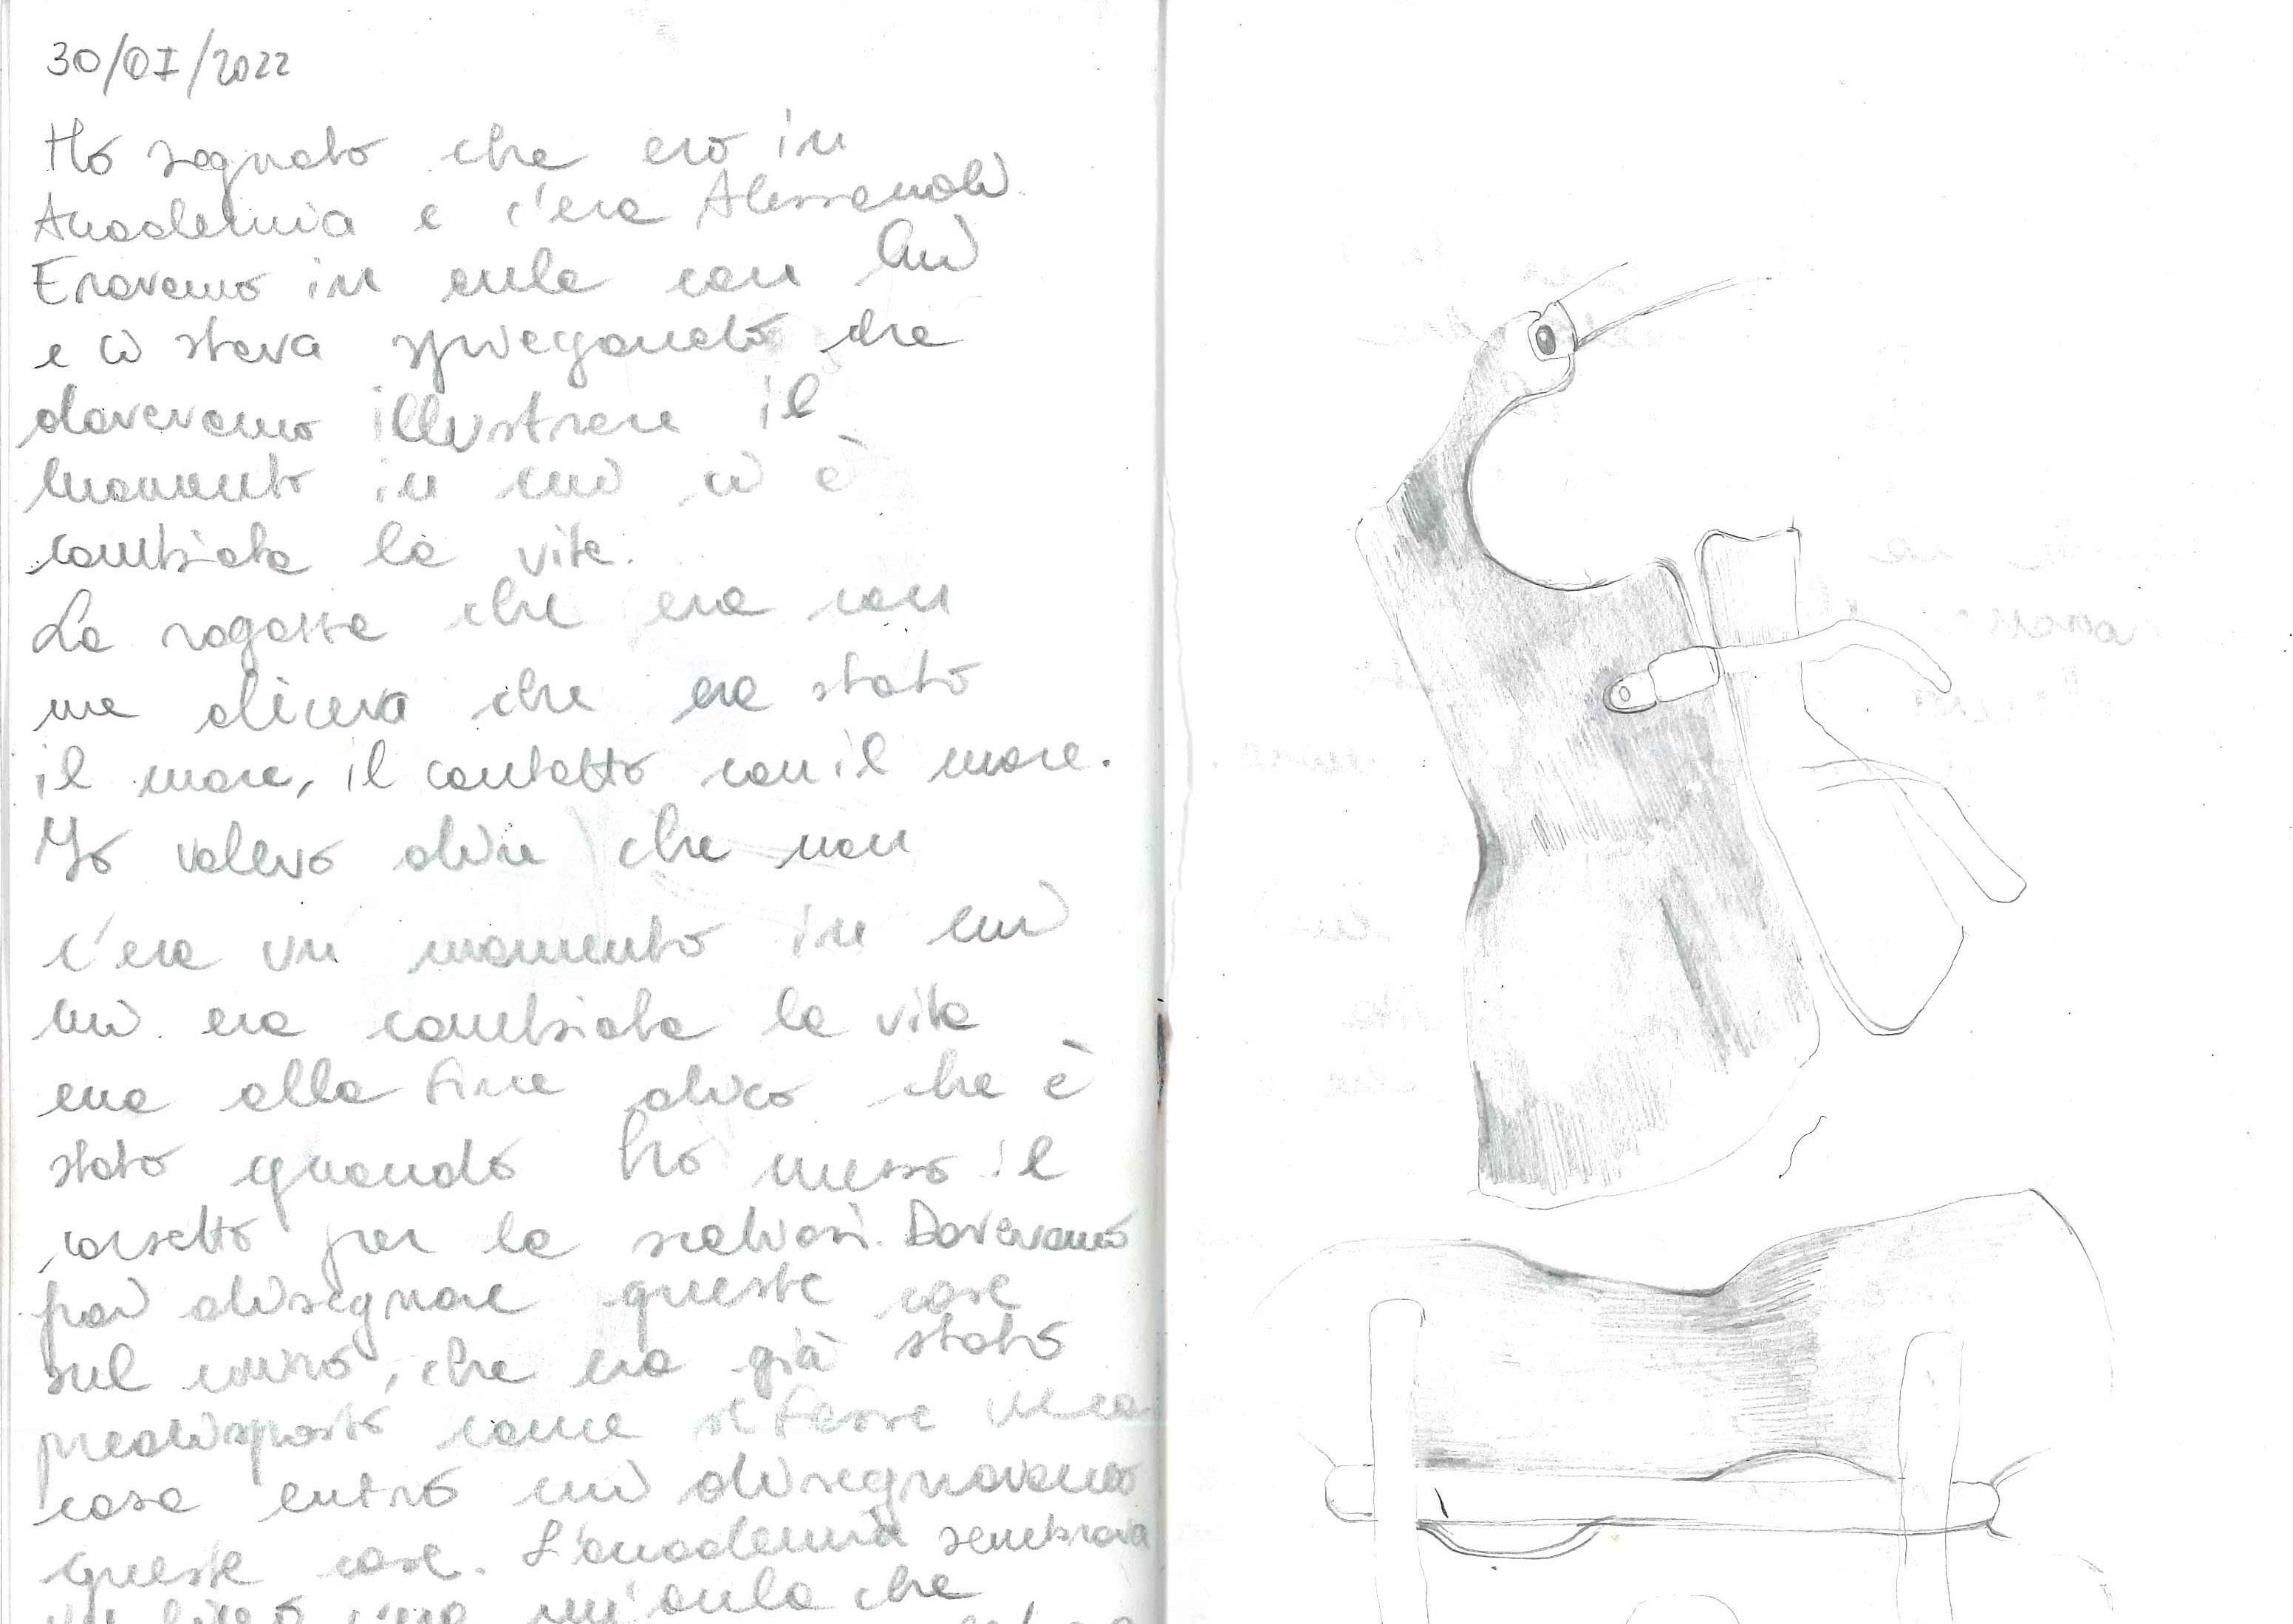 30/01/2022
Ho sognato che ero in
Accademia e c'era Alessandri
Eravamo in aula con lui
e ci stava spiegando che
dovevamo illustrare il
momento in cui ci è
cambiata la vita.
La ragazza che era con
me diceva che era stato
il mare, il contatto con il mare.
Io volevo dire che non
c'era un momento in cui
mi era cambiata la vita
ma alla fine dico che è
stato quando ho messo il
corsetto per la scoliosi. Dovevamo
poi disegnare queste cose
sul muro, che era già stato
predisposto come se fosse una
casa entro cui disegnavamo
queste cose. L'accademia sembrava
un c'era un'aula che